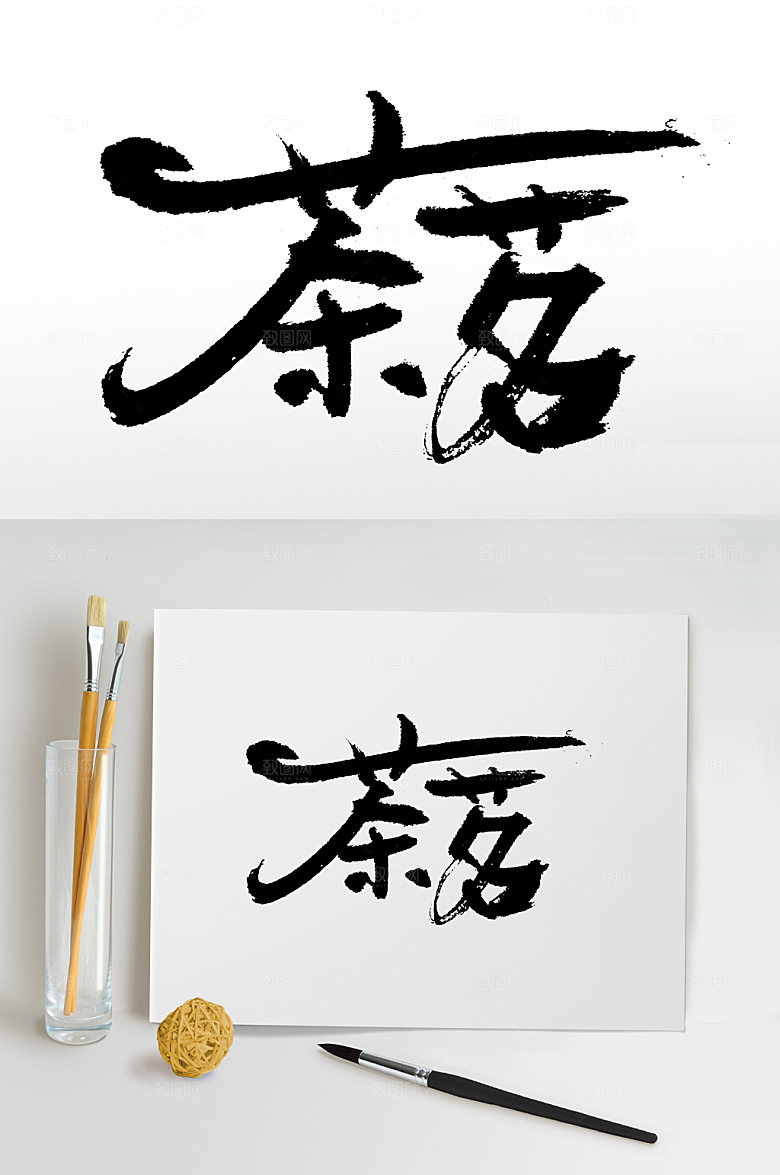 茶茗
茶茗